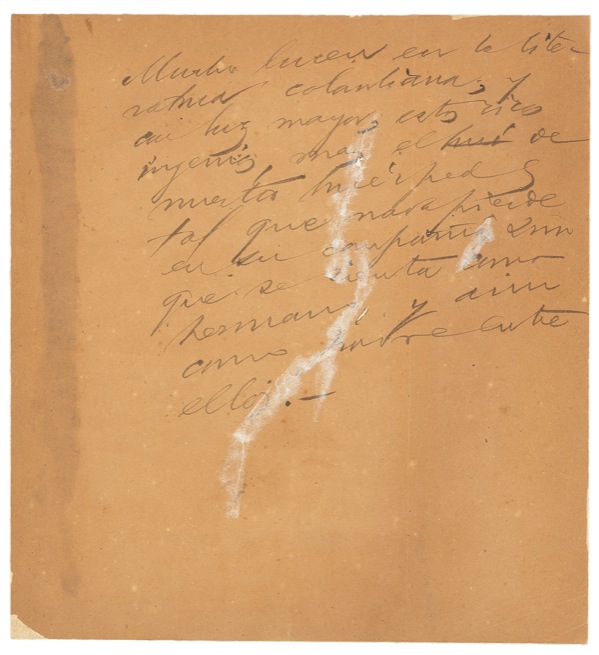 Mucho lucen en la lite-
ratura colombiana, y
con luz mayor, estos ricos
ingenios, mas el de
nuestro huésped es
tal que nada pierde
en su compañía, sino
que se sienta como
hermano, y aun
como padre entre
ellos.—